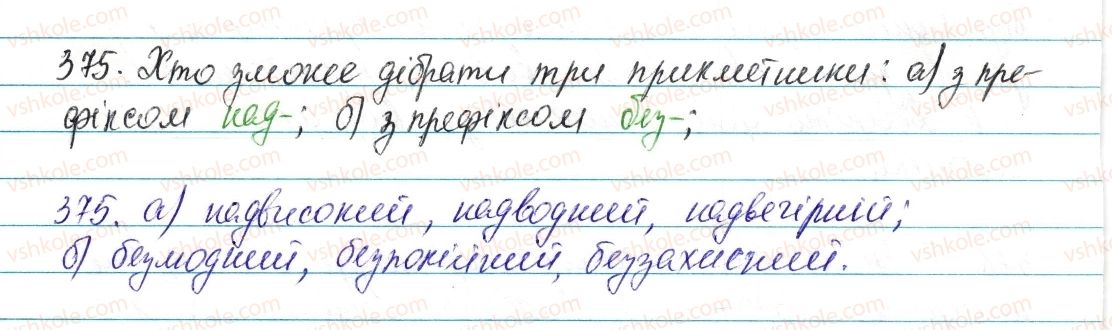 375. Хто зможе дібрати три прикметники: а) з пре-
фіксом над-; б) з префіксом без-;
375. а) надвисокий, надводний, надвечірній;
б) безмодний, безпокійний, беззахисний.